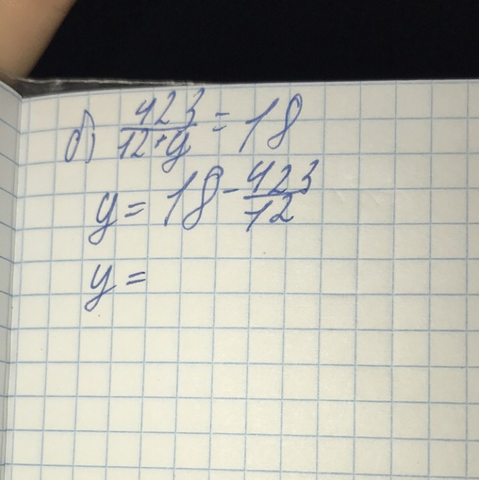 б) 423/12+y = 18
y = 18 - 423/12
y =